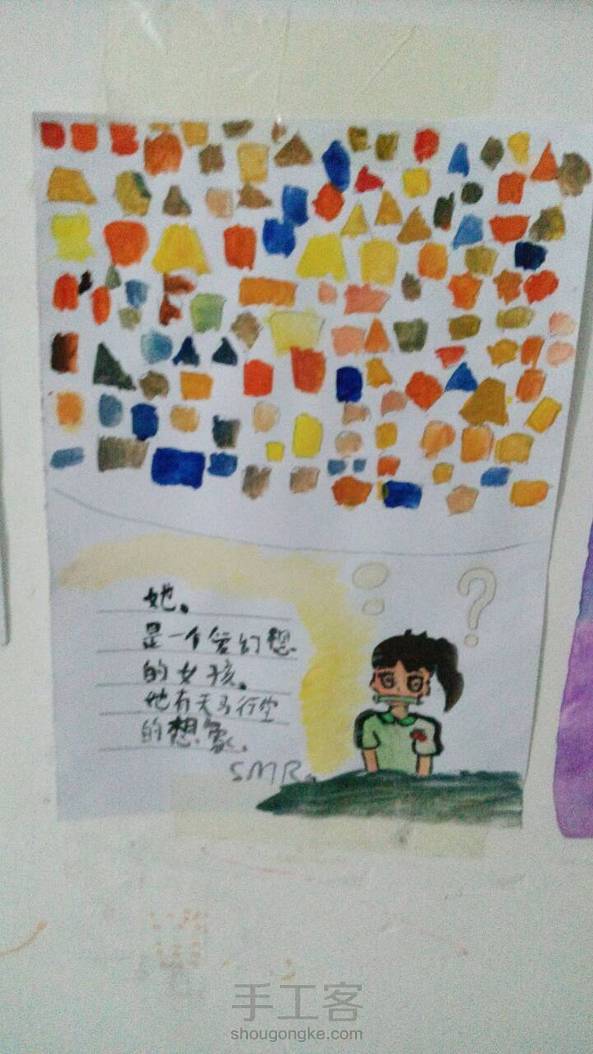 她。
是一个爱幻想
的女孩。
她有天马行空
的想象。
SMR。
?
手工客
shougongke.com